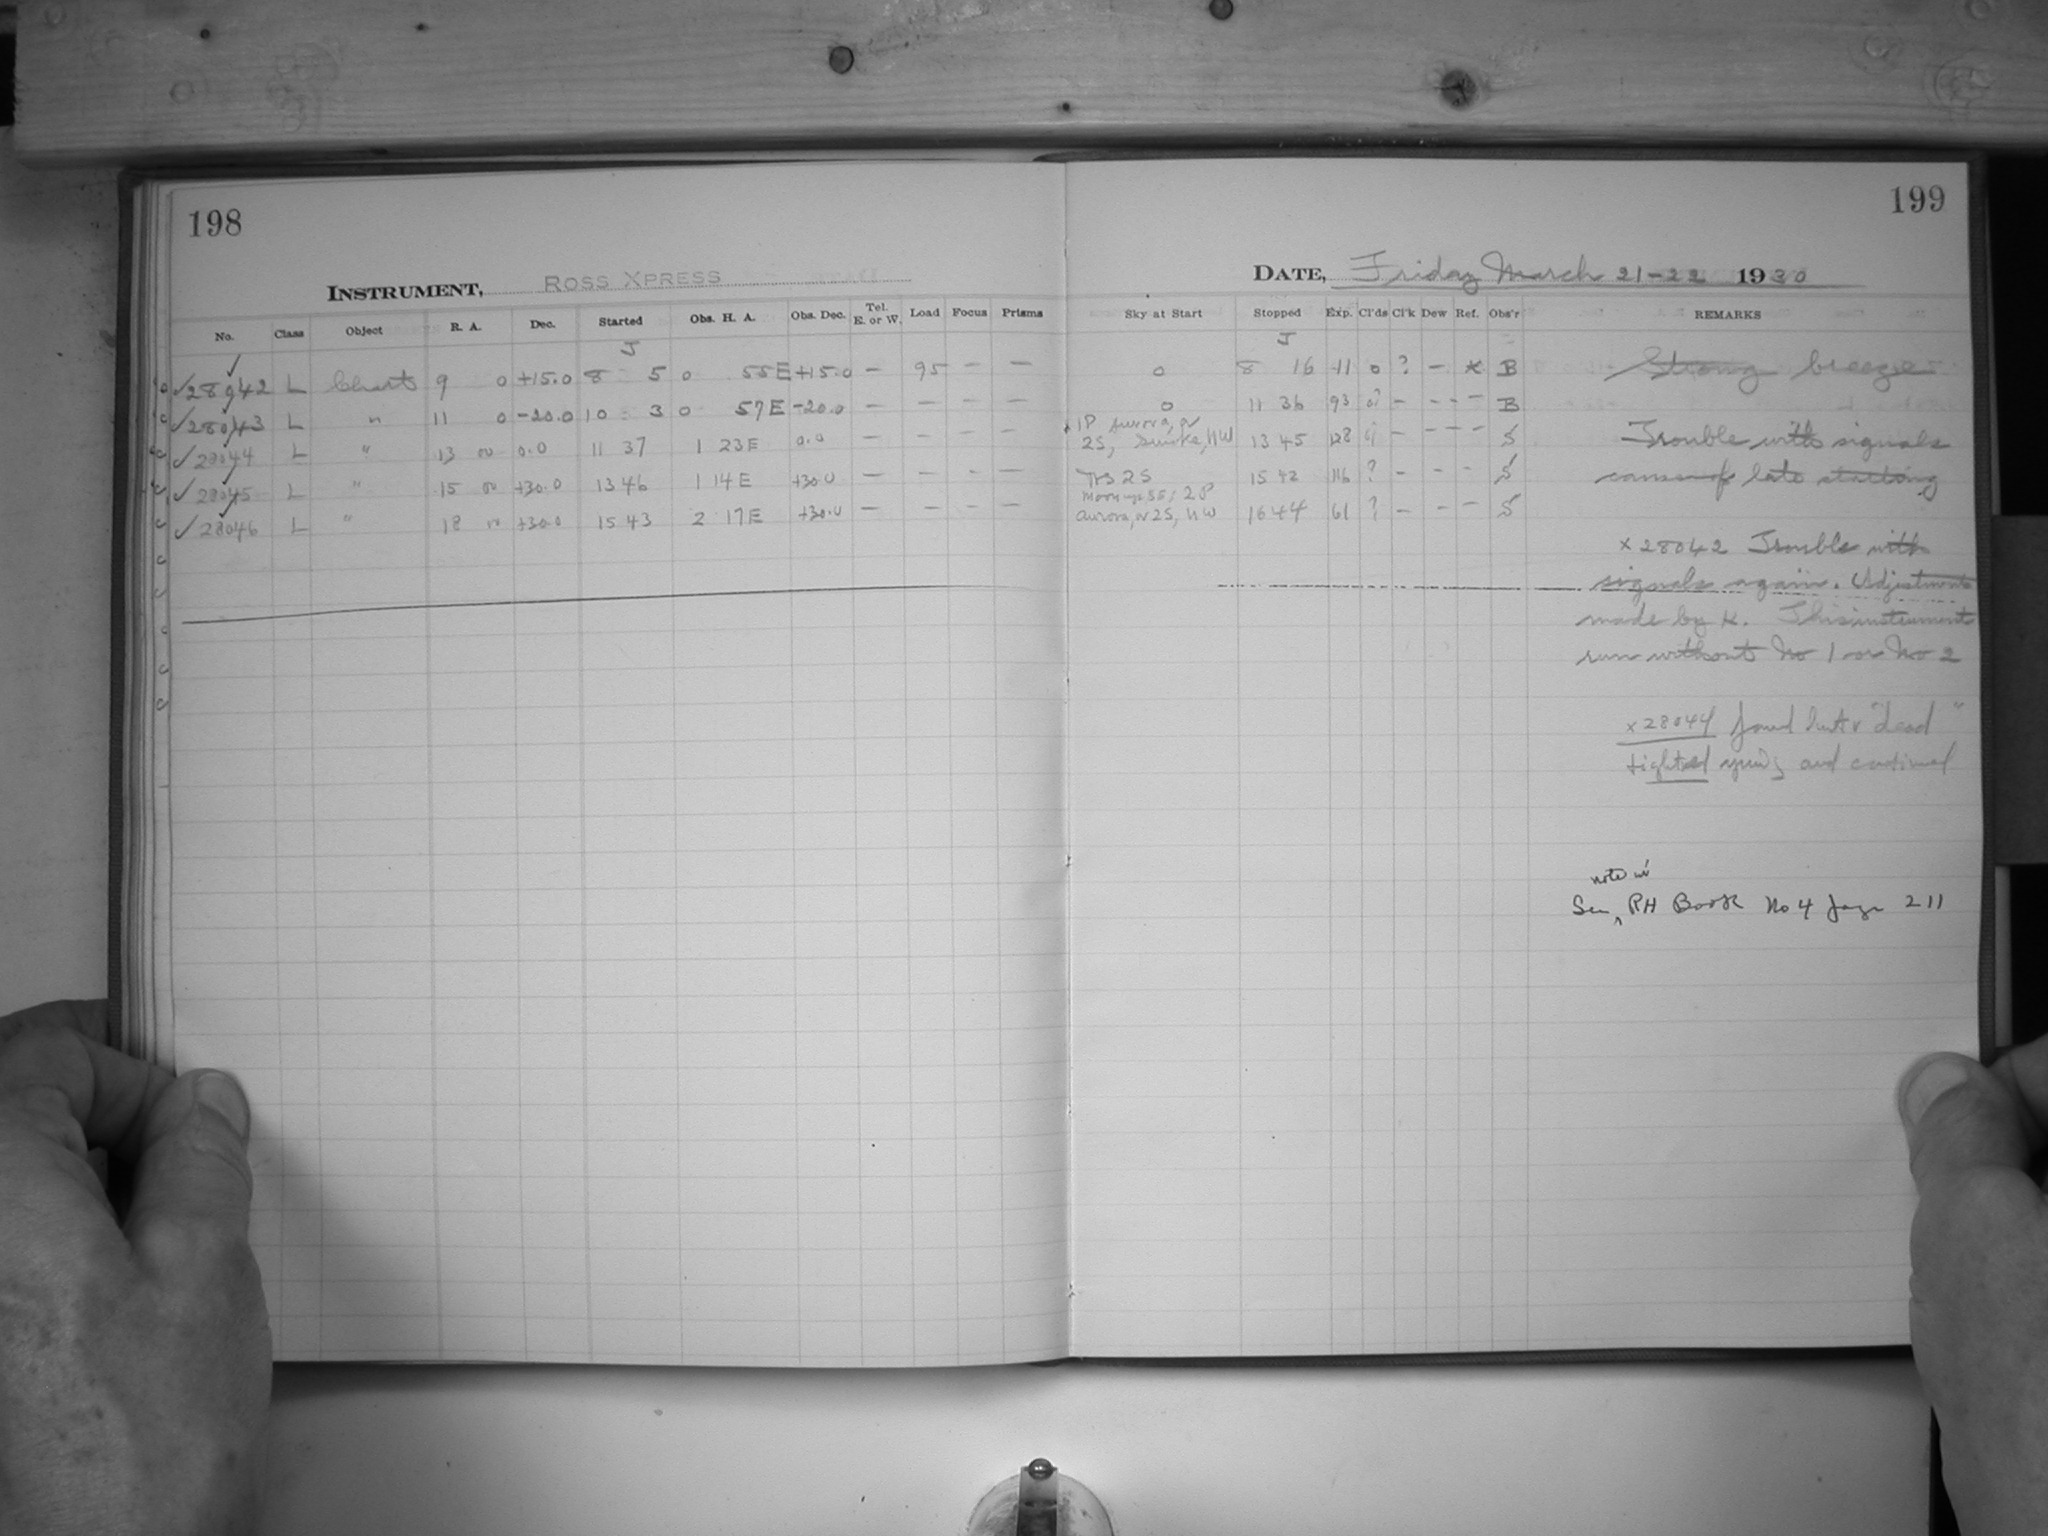 198
INSTRUMENT, ROSS XPRESS
No. Class Object R. A. Dec. Started Obs. H. A. Obs. Dec. Tel. E. or W. Load Focus Prisms
J
28042 L Chart 9 0 +15.0 8 5 0 55E +15.0 — 95 — —
28043 L " 11 0 -20.0 10 3 0 57E -20.0 — — — —
28044 L " 13 00 0.0 11 37 1 23E 0.0 — — — —
28045 L " 15 00 +30.0 13 46 1 14E +30.0 — — — —
28046 L " 18 00 +30.0 15 43 2 17E +30.0 — — — —
199
DATE, Friday March 21-22 1930
Sky at Start Stopped Exp. Cl'ds Cl'k Dew Ref. Obs'r REMARKS
J
0 8 16 11 0 ? — * B Strong breeze
0 11 36 93 0? — — — B
1P Aurora, N
2S, Smoke, HW 13 45 128 — — — S Trouble with signals
2S 15 42 116 ? — — — S cause of late starting
Moon up 2P
Aurora, N 2S, HW 16 44 61 ? — — — S
x 28042 Trouble with
signals again. Adjustments
made by K. This instrument
run without No 1 or No 2
x 28044 found "dead"
and continued
note in
See PH Book No 4 page 211